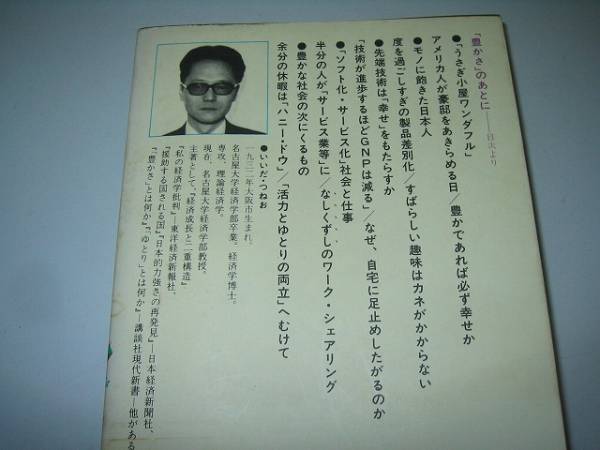 「豊かさ」のあとに――目次より
●「うさぎ小屋ワンダフル」
アメリカ人が豪邸をあきらめる日／豊かであれば必ず幸せか
●モノに飽きた日本人
度を過ごしすぎの製品差別化／すばらしい趣味はカネがかからない
●先端技術は「幸せ」をもたらすか
「技術が進歩するほどGNPは減る」／なぜ、自宅に足止めしたがるのか
●「ソフト化・サービス化」社会と仕事
半分の人が「サービス業等」に／なしくずしのワーク・シェアリング
●豊かな社会の次にくるもの
余分の休暇は「ハニー・ドウ」／「活力とゆとりの両立」へむけて
●いいだ・つねお
一九三二年大阪市生まれ。
名古屋大学経済学部卒業。経済学博士。
専攻、理論経済学。
現在、名古屋大学経済学部教授。
主著として、『経済成長と二重構造』
『私の経済学批判』―東洋経済新報社、
『援助する国される国』『日本的力強さの再発見』―日本経済新聞社、
『「豊かさ」とは何か』『「ゆとり」とは何か』―講談社現代新書―他がある